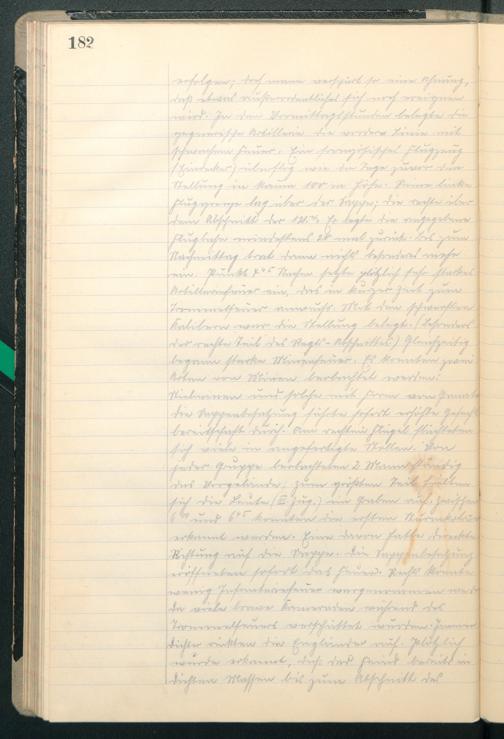 182
erfolgen; doch man verspürt so eine Ahnung,
daß etwas außerordentliches sich noch ereignen
wird. In den Vormittagsstunden belegte die
gegnerische Artillerie die vordere Linie mit
schwachem Feuer. Ein französisches Flugzeug
überflog wie die Tage zuvor die
Stellung in kaum 100 m Höhe. Seine linke
Fluggrenze lag über der Sappe; die rechte über
dem Abschnitt der 12. Er legte die angegebene
Flugbahn mindestens mal zurück. Bis zum
Nachmittag trat dann nichts besonderes mehr
ein. Punkt 4 45 Nachm. setzte plötzlich sehr starkes
Artilleriefeuer ein, das in kurzer Zeit zum
Trommelfeuer anwuchs. Mit den schwersten
Kalibern war die Stellung belegt. (besonders
der rechte Teil des Regts-Abschnittes) Gleichzeitig
begann starkes Minenfeuer. Es konnten zwei
Arten von Minen beobachtet werden:
und solche mit Form von Granaten
Die Sappenbesatzung führte sofort erhöhte Gefechts
bereitschaft durch. Am rechten Flügel flüchteten
sich viele in angefertigte Stollen. Von
jeder Gruppe beobachteten 2 Mann ständig
das Vorgelände; zum größten Teil hielten
sich die Leute (III Zug) im Graben auf. Zwischen
6 und 6 45 konnten die ersten Sturmkolonnen
erkannt werden. Eine davon hatte direkte
Richtung auf die Sappe. Die Sappenbesatzung
eröffneten sofort das Feuer. Rechts konnte
wenig Infanteriefeuer wargenommen werden
da viele brave Kameraden während des
Trommelfeuers verschüttet wurden. Immer
dichter rückten die Engländer auf. Plötzlich
wurde erkannt, daß der Feind bereits in
dichten Massen bis zum Abschnitt des